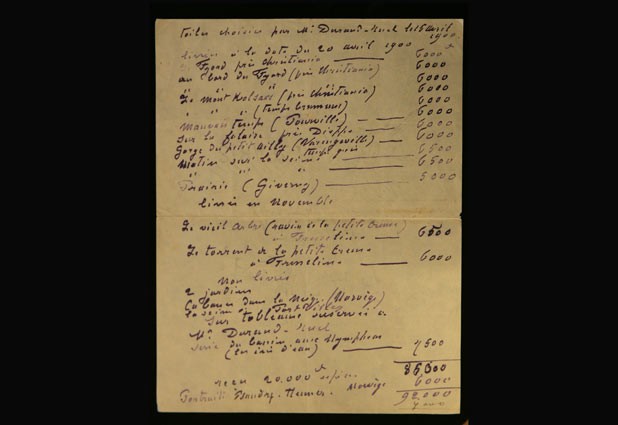 Toiles choisies par Mr Durand-Ruel le 16 avril 1900
livrées à la date du 20 avril 1900
Fjord près Christiania 6000
au bord du Fjord (près Christiania) 6000
Le mont Kolsaas (près Christiania) 6000
" " " (temps brumeux) 6000
Mauvais temps (Pourville) 6000
Sur la falaise près Dieppe 6000
Gorge du petit ailly (Varengeville) 6000
Matin sur la Seine temps gris 6500
" " " 6500
Prairie (Giverny) 5000
livrés en Novembre
Le vieil arbre (ravin de la petite Creuse)
à Fresselines 6500
Le torrent de la petite Creuse
à Fresselines 6000
Non livrés
2 jardins
Cabanes dans la neige (Norvège)
La Seine à Port Villez
Sur tableaux réservés à
Mr Durand-Ruel
Série du bassin avec Nymphéas
(en jeu d'eau) 7500
86,000
reçu 20.000 Norvège 6000
92,000
Portraits